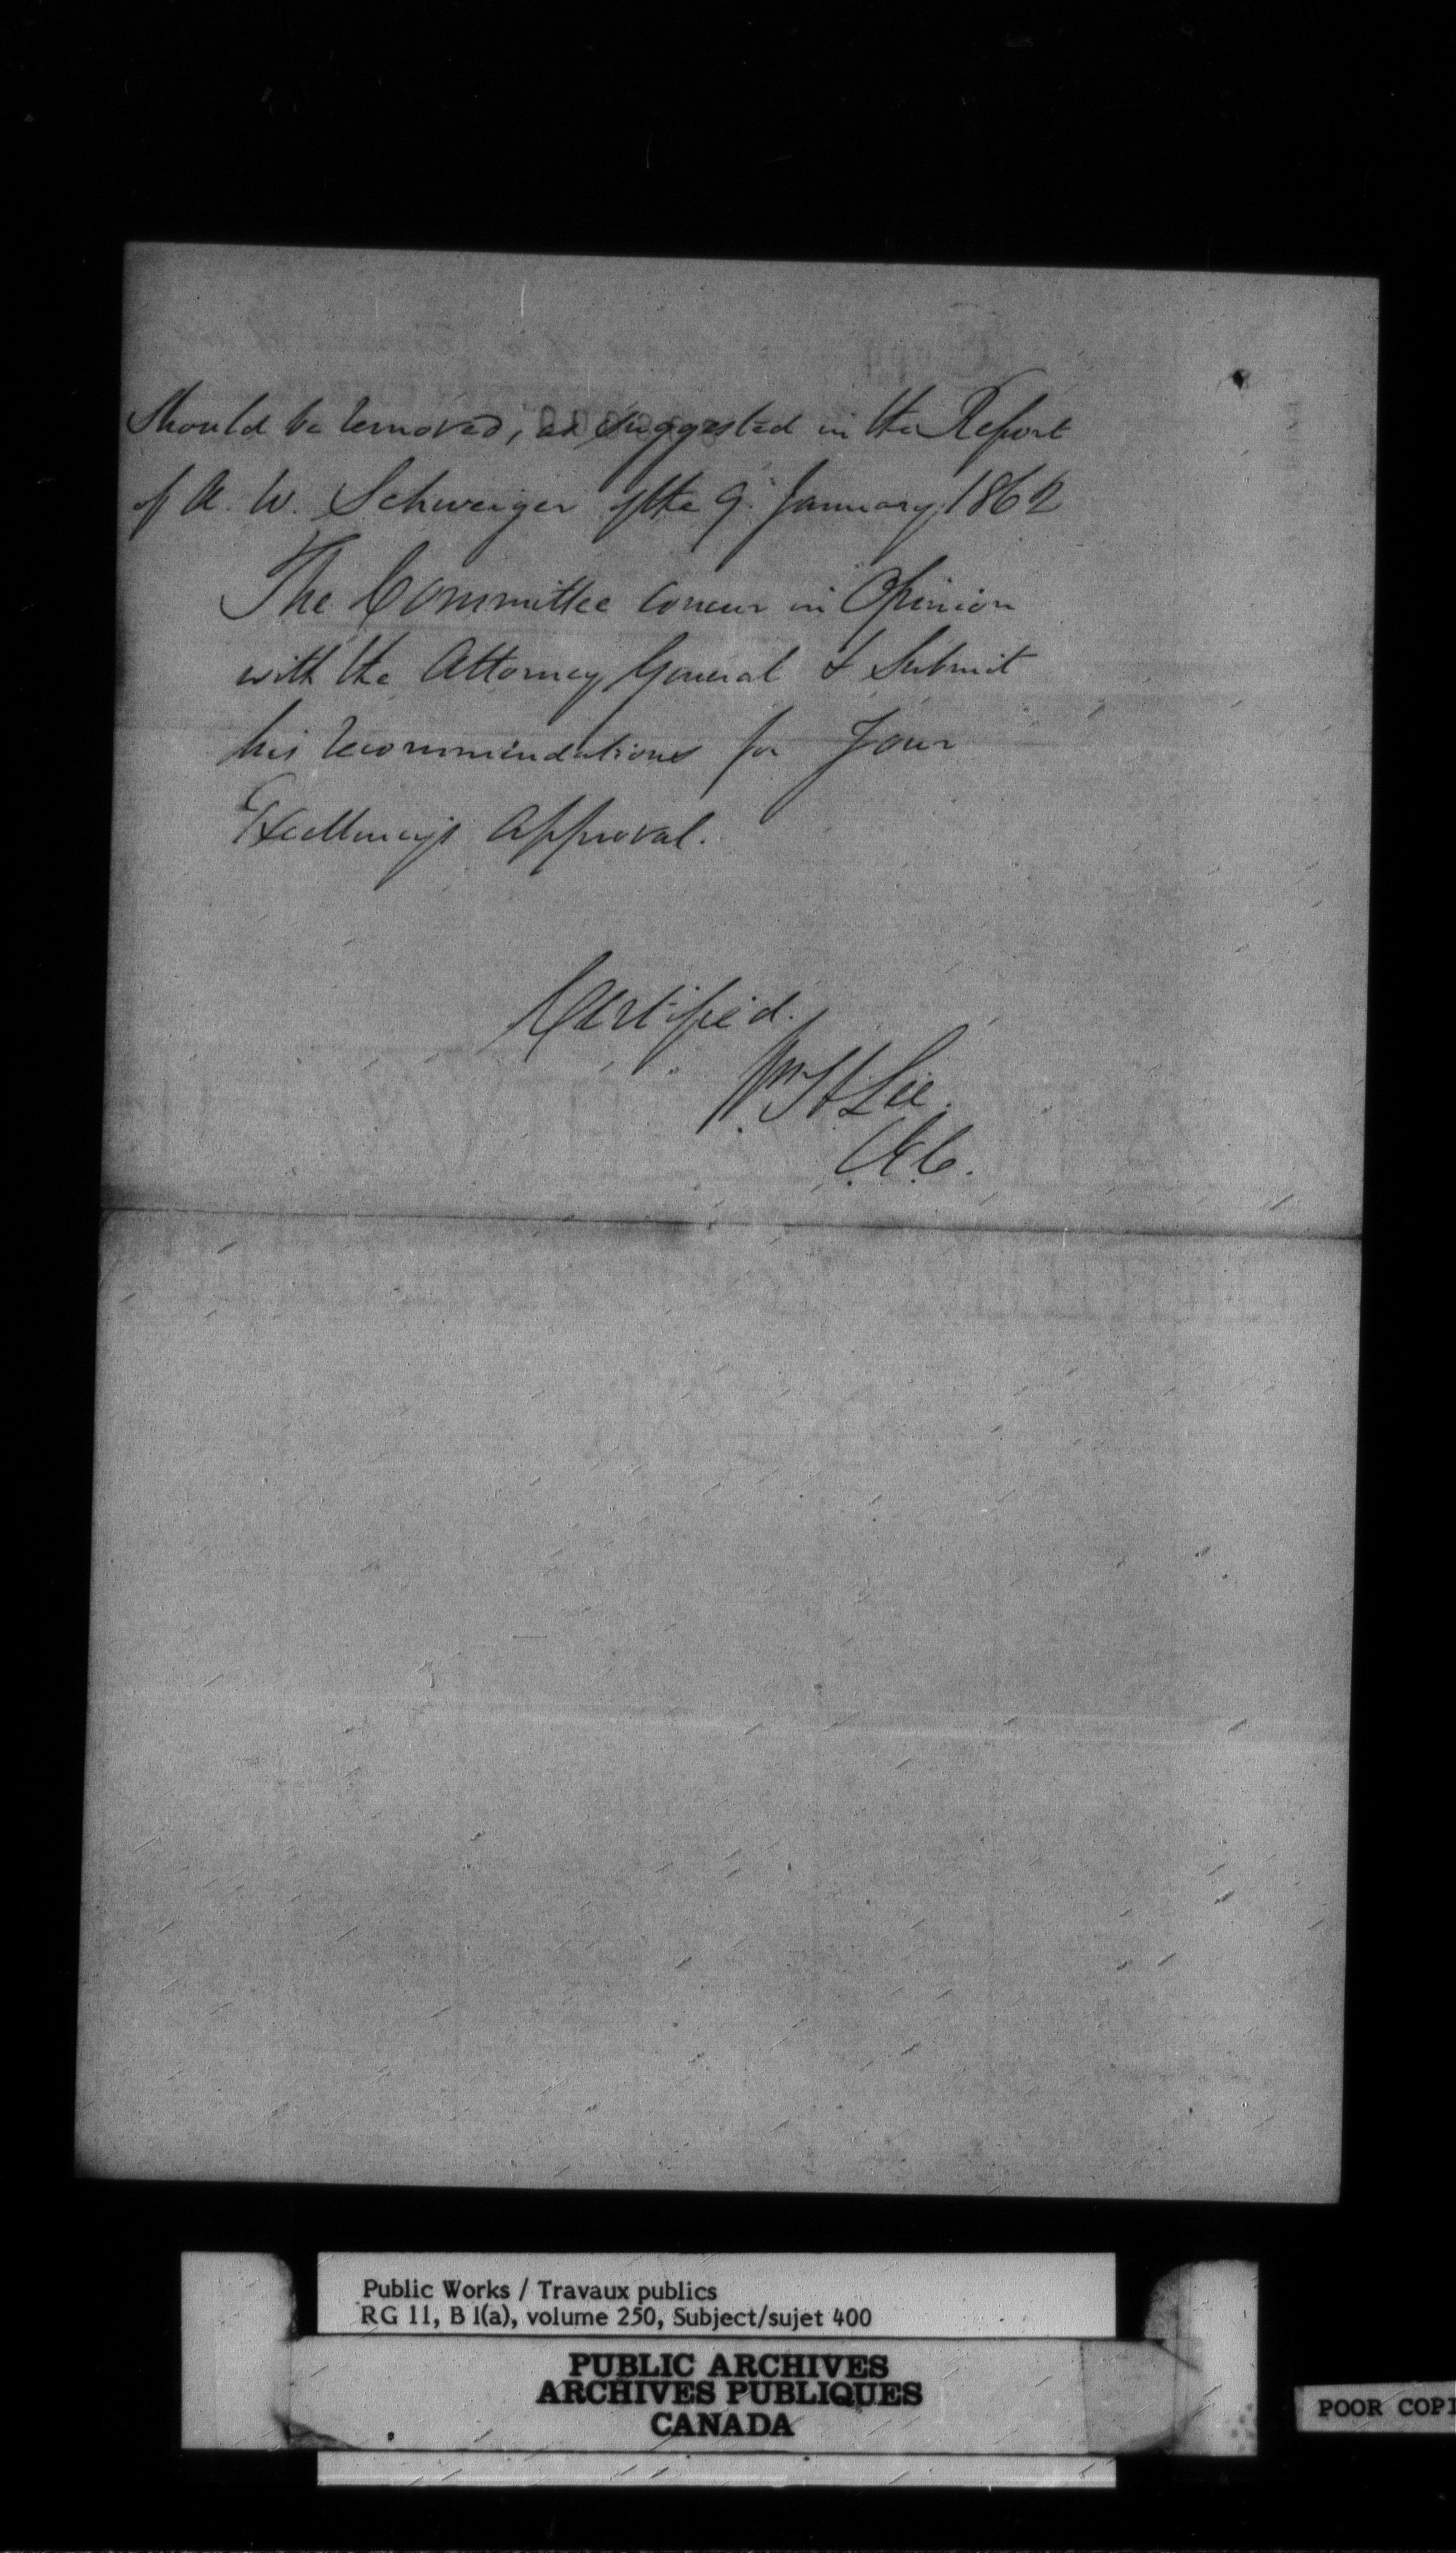 should be removed, as suggested in the Report
of A. W. Schweiger of the 9. January 1862
The Committee concur in Opinion
with the Attorney General & Submit
his recommendations for Your
Excellency's approval.
Certified.
Wm H Lee.
C.E.C.
Public Works / Travaux publics
RG 11, B 1(a), volume 250, Subject/sujet 400
PUBLIC ARCHIVES
ARCHIVES PUBLIQUES
CANADA
POOR COPI